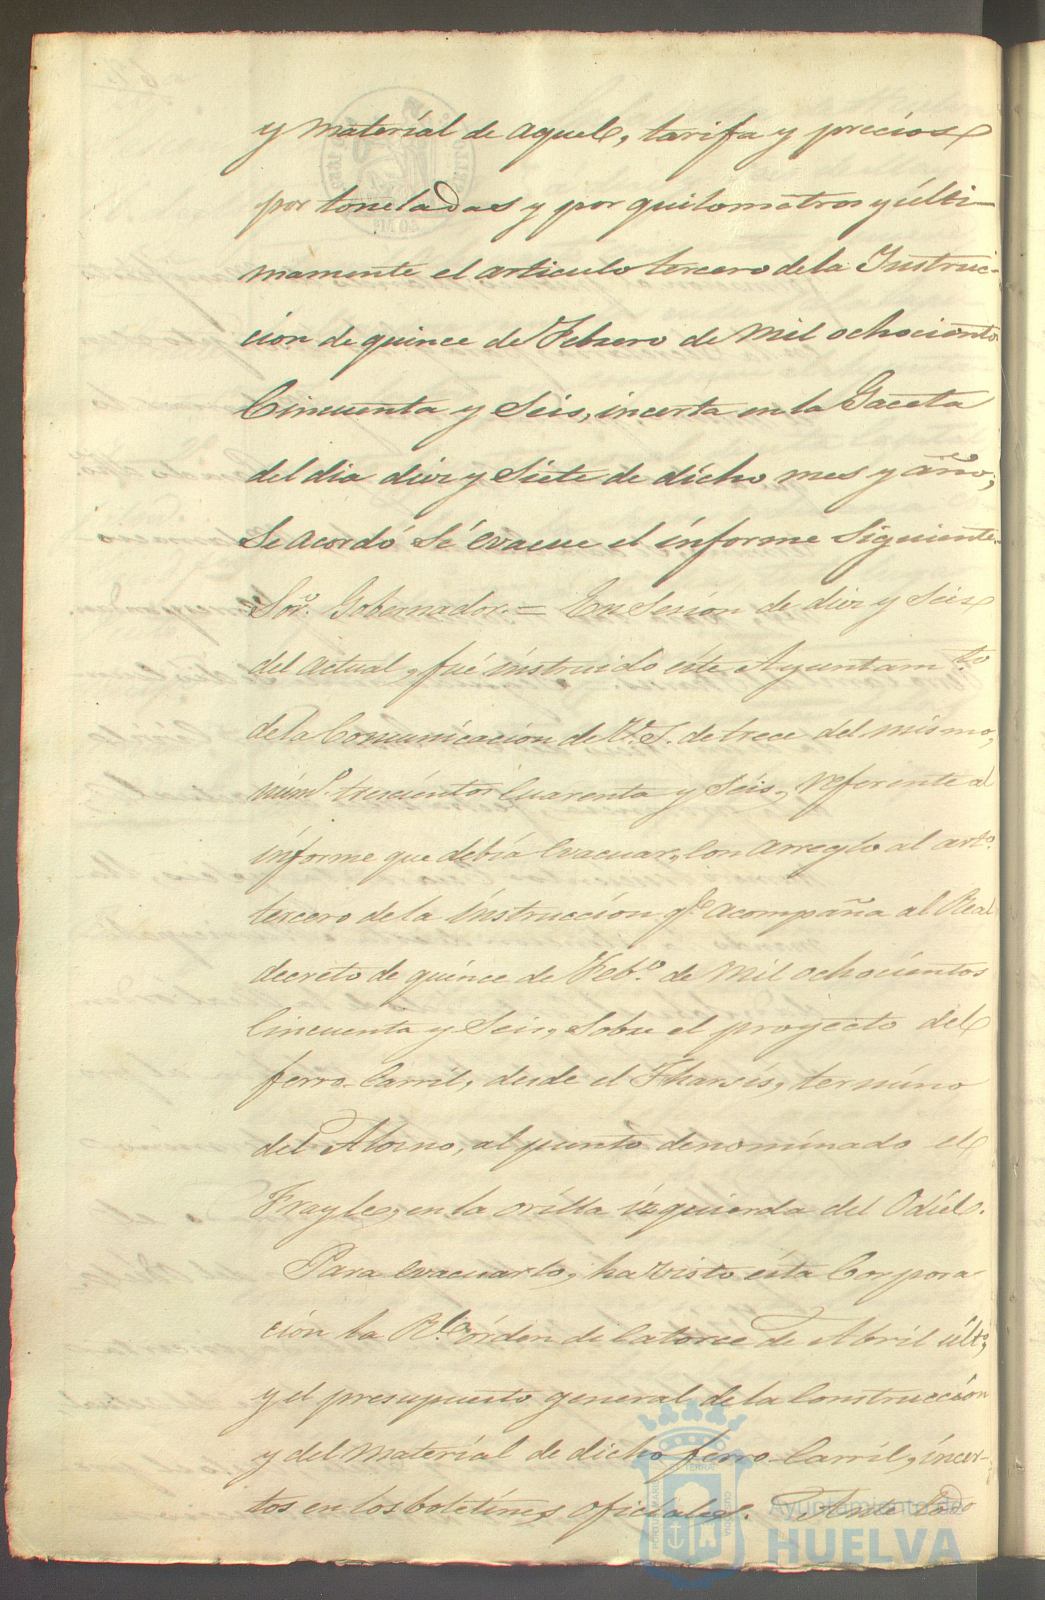 y material de aquel, tarifa y precios
por toneladas y por quilometros y últi-
mamente el articulo tercero de la Instruc-
ción de quince de Febrero de mil ochocientos
Cincuenta y Seis, incerta en la Gaceta
del dia diez y Siete de dicho mes y año;
Se acordó sé evacue el informe Siguiente.
Sor. Gobernador. = En Sesion de diez y Seis
del actual, fué instruido este Ayuntamto
de la Comunicacion de V. S. de trece del mismo,
númo. trescientos Cuarenta y Séis, referente al
informe que debía evacuar, con arreglo al arto.
tercero de la instrucción qe. acompaña al Real
decreto de quince de Febo. de mil ochocientos
Cincuenta y Seis, Sobre el proyecto del
ferro-Carril, desde el Tharsis, termino
del Alosno, al punto denominado el
Frayle, en la orilla izquierda del Odiel.
Para evacuarlo, ha visto ésta Corpora
ción la Rl. órden de Catorce de Abril últo,
y el presupuesto general de la Construcción
y del material de dicho ferro-Carril, incer-
tos en los boletines oficiales. Ante todo
Ayuntamiento de
HUELVA